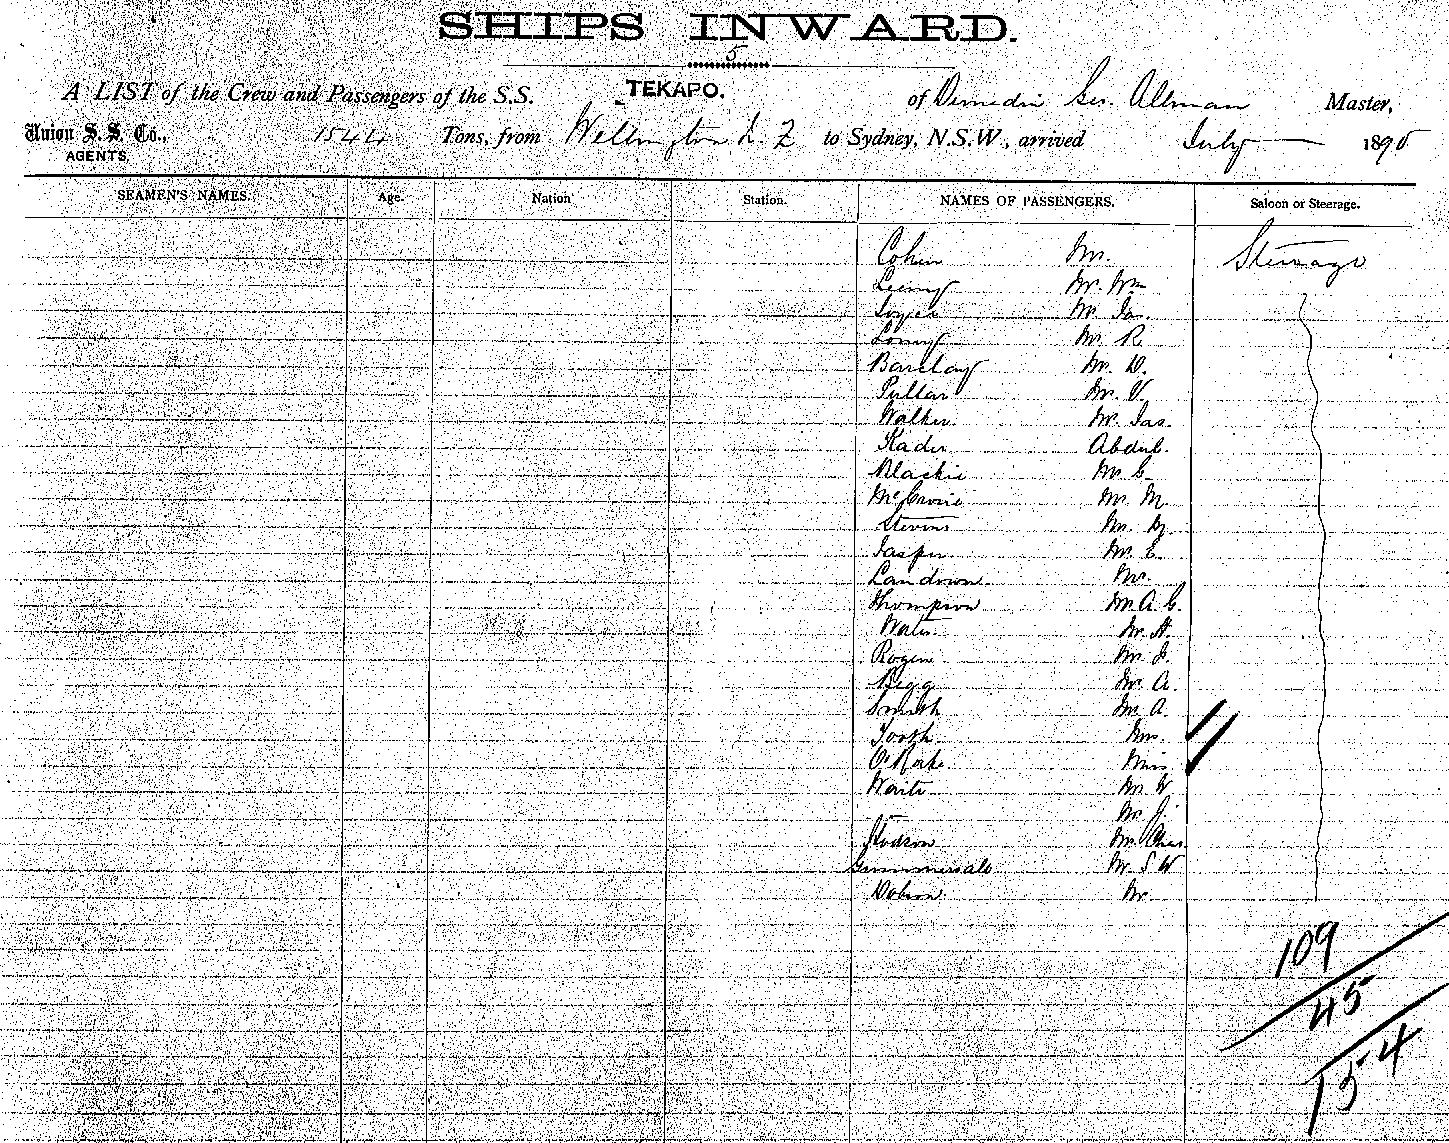 SHIPS INWARD.
5
A LIST of the Crew and Passengers of the S.S. TEKAPO. of Dunedin Geo. Allman Master,
Union S. S. Co., AGENTS 1544 Tons, from Wellington N. Z to Sydney, N.S.W., arrived July 1895
SEAMEN'S NAMES. Age. Nation Station. NAMES OF PASSENGERS. Saloon or Steerage.
Cohen Mr. Steerage
Mr. Wm
Mr. Jas.
Mr. R
Barclay Mr. D.
Pullar Mr. V.
Walker Mr. Jas.
Kader Abdul.
Blackie Mr. C.
McCrorie Mr. M
Stevens Mr.
Jasper Mr. C.
Landown Mr.
Thompson Mr. A. C.
Mr. H.
Rogers Mr. J.
Begg Mr. A.
Smith Mr. A.
Tooth Mrs.
O'Rorke Miss
Waite Mr. W
Mr. J.
Hodson Mr. Chas
Mr. S W
Dobson Mr.
109
45
154